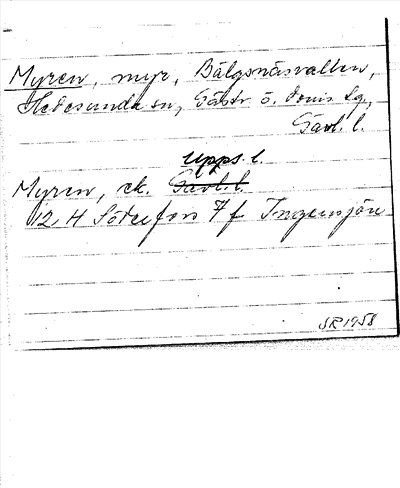 Myren, myr, Bälgsnäsvallen,
Hedesunda sn, Gästr. ö. doms. lg,
Gävl. l.
Upps. l.
Myren, ek. Gävl. l.
12 H Söderfors 7 f Ingensjön
SR 1958